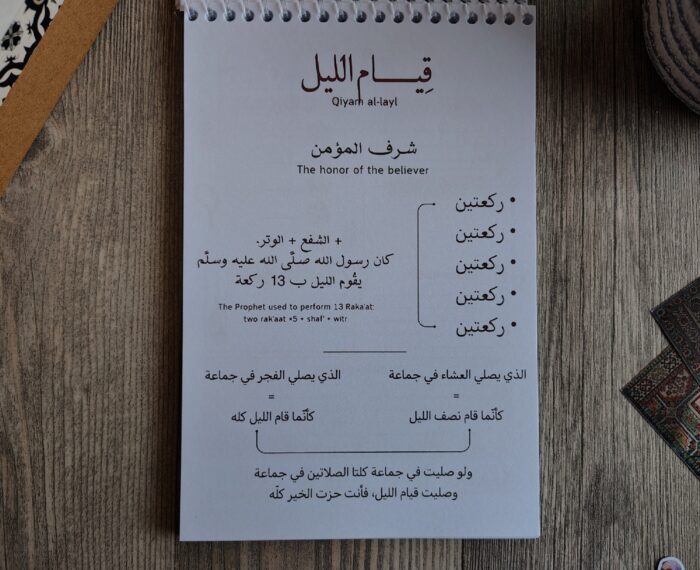 قِيـــام الليل
Qiyam al-layl
شرف المؤمن
The honor of the believer
• ركعتين
• ركعتين
• ركعتين
• ركعتين
• ركعتين
+ الشفع + الوتر.
كان رسول الله صلَّى الله عليه وسلَّم
يقُوم الليل ب 13 ركعة
The Prophet used to perform 13 Raka'at:
two rak'aat ×5 + shaf' + witr
الذي يصلي العشاء في جماعة
=
كأنّما قام نصف الليل
الذي يصلي الفجر في جماعة
=
كأنّما قام الليل كله
ولو صليت في جماعة كلتا الصلاتين في جماعة
وصليت قيام الليل، فأنت حزت الخير كلّه